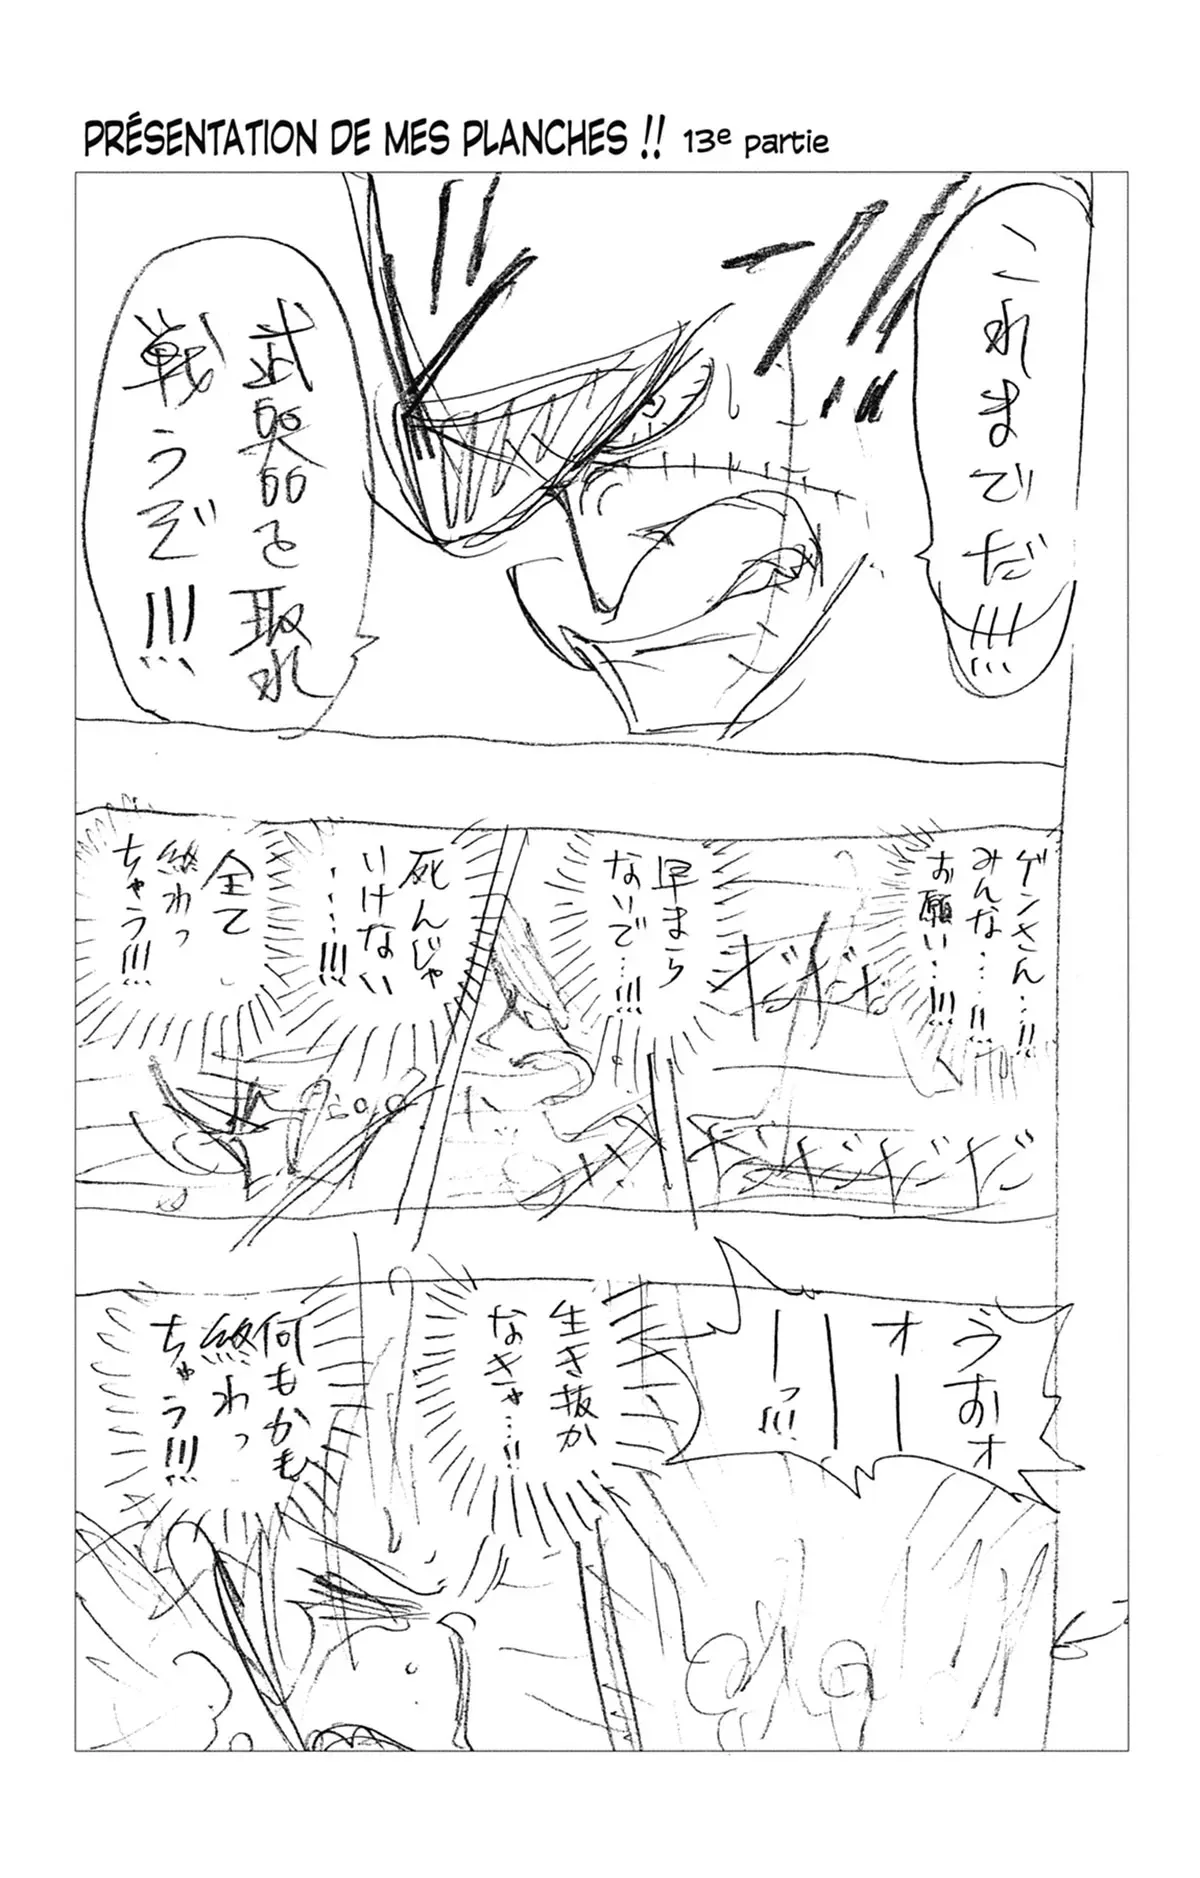 PRÉSENTATION DE MES PLANCHES !! 13e partie
これまでだ!!!
武器を取れ
戦うぞ!!!
ゲンさん…!!
みんな…!!
お願い…!!!
早まら
ないで…!!!
死んじゃ
いけない
……!!!
全て
終わっ
ちゃう!!!
うおォ
オー
ー
ーっ!!!
生き抜か
なきゃ…!!
何もかも
終わっ
ちゃう!!!